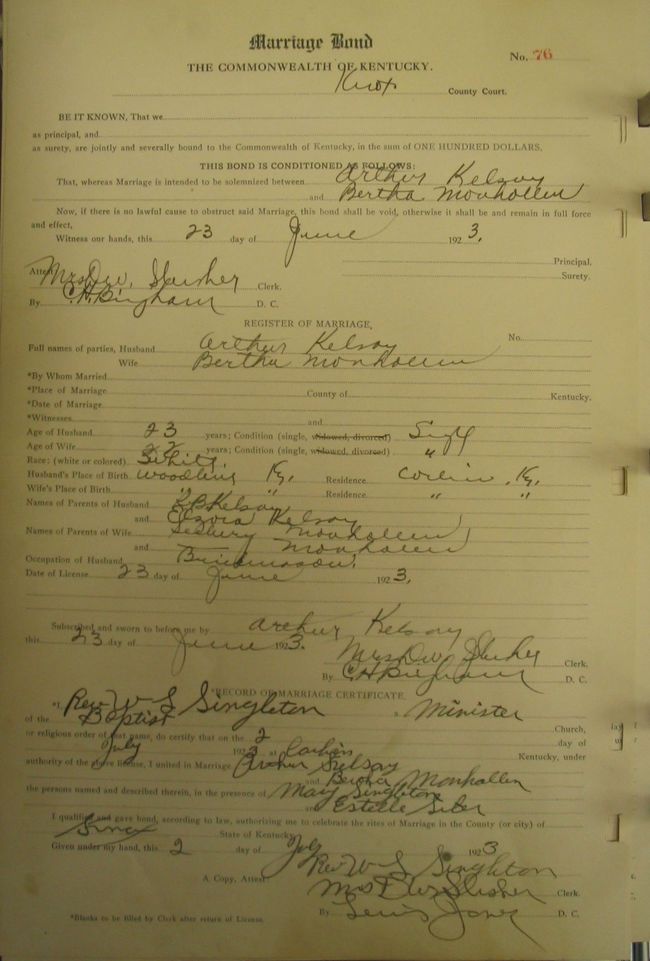 Marriage Bond
No. 76
THE COMMONWEALTH OF KENTUCKY.
Knox County Court.
BE IT KNOWN, That we
as principal, and
as surety, are jointly and severally bound to the Commonwealth of Kentucky, in the sum of ONE HUNDRED DOLLARS.
THIS BOND IS CONDITIONED AS FOLLOWS:
That, whereas Marriage is intended to be solemnized between Arthur Kelsay
and Bertha Monhollen
Now, if there is no lawful cause to obstruct said Marriage, this bond shall be void, otherwise it shall be and remain in full force
and effect,
Witness our hands, this 23 day of June 1923.
Principal,
Surety.
Attest Mrs D.W. Slusher Clerk.
By C.H. Bingham D. C.
REGISTER OF MARRIAGE.
No.
Full names of parties, Husband Arthur Kelsay
Wife Bertha Monhollen
*By Whom Married
*Place of Marriage County of Kentucky.
*Date of Marriage
*Witnesses and
Age of Husband 23 years; Condition (single, widowed, divorced) Singl
Age of Wife 22 years; Condition (single, widowed, divorced) "
Race; (white or colored). White
Husband's Place of Birth Woodbine Ky. Residence Corbin, Ky.
Wife's Place of Birth " " Residence. " "
Names of Parents of Husband Kelsay
and Kelsay
Names of Parents of Wife Monhollen
and Monhollen
Occupation of Husband
Date of License 23 day of June 1923.
Subscribed and sworn to before me by Arthur Kelsay
this 23 day of June 1923.
Mrs D.W. Slusher Clerk.
By C.H. Bingham D. C.
*RECORD OF MARRIAGE CERTIFICATE.
*I, Rev W S Singleton a Minister
of the Baptist Church,
or religious order of that name, do certify that on the 2 day of
July 1923 at Corbin Kentucky, under
authority of the above license, I united in Marriage Arthur Kelsay
and Bertha Monhollen
the persons named and described therein, in the presence of May Singleton
and Estelle Siler
I qualified and gave bond, according to law, authorizing me to celebrate the rites of Marriage in the County (or city) of
Knox State of Kentucky
Given under my hand, this 2 day of July 1923
Rev W S Singleton
A Copy, Attest: Mrs D W Slusher Clerk.
By Lewis Jones D. C.
*Blanks to be filled by Clerk after return of License.